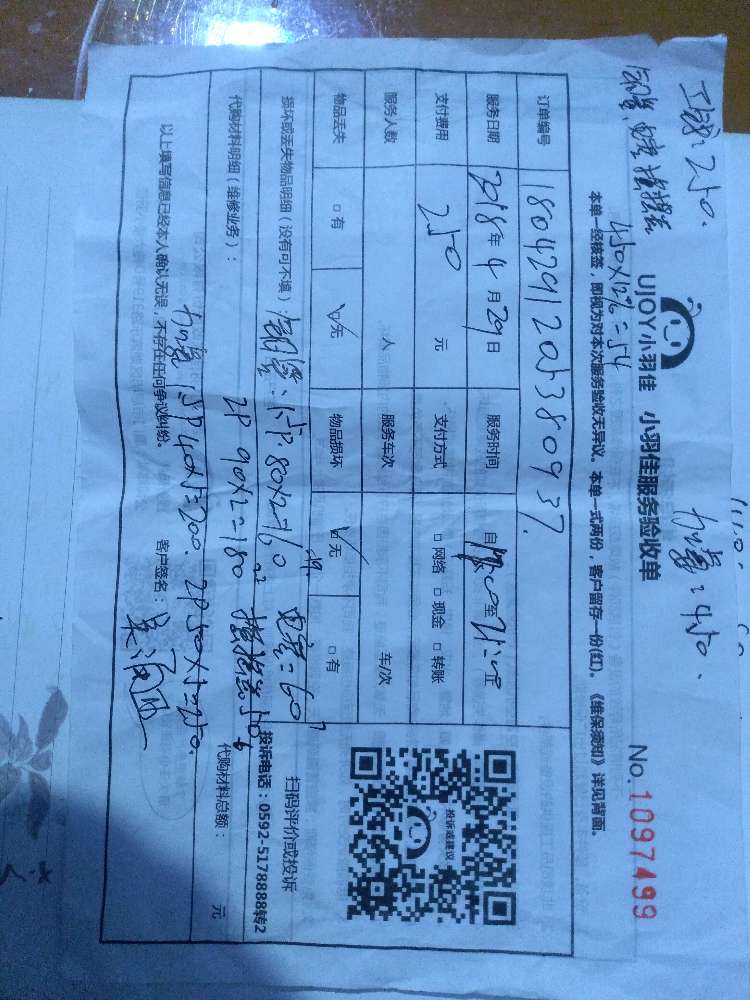 工费:250.
加氟:450.
铜管,电容,遥控器
450×12%=54
UJOY小羽佳 小羽佳服务验收单
No.1097499
本单一经核签,即视为对本次服务验收无异议。本单一式两份,客户留存一份(红)。《维保须知》详见背面。
订单编号 180429120538093 7.
服务日期 2018年4月29日 服务时间 自 至
支付费用 250 元 支付方式 □网络 □现金 □转账
服务人数 人 服务车次 车/次
物品丢失 □有 ☑无 物品损坏 ☑无 □有
投诉或建议
扫码评价或投诉
投诉电话:0592-5178888转2
损坏或丢失物品明细(没有可不填): 铜管:1.5P 80×2=160 电容=60
2P 90×2=180
代购材料明细(维修业务):
代购材料总额: 元
加氟 1.5P 40×5=200. 2P 50×5=250.
以上填写信息已经本人确认无误,不存在任何争议纠纷。 客户签名: